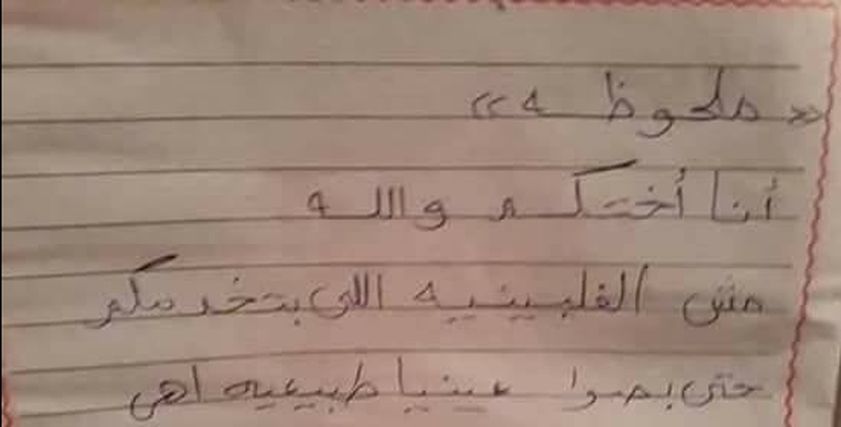 « ملحوظه »
أنا أختكم والله
مش الفلبينيه اللى بتخدمكم
حتى بصوا عينيا طبيعيه اهى